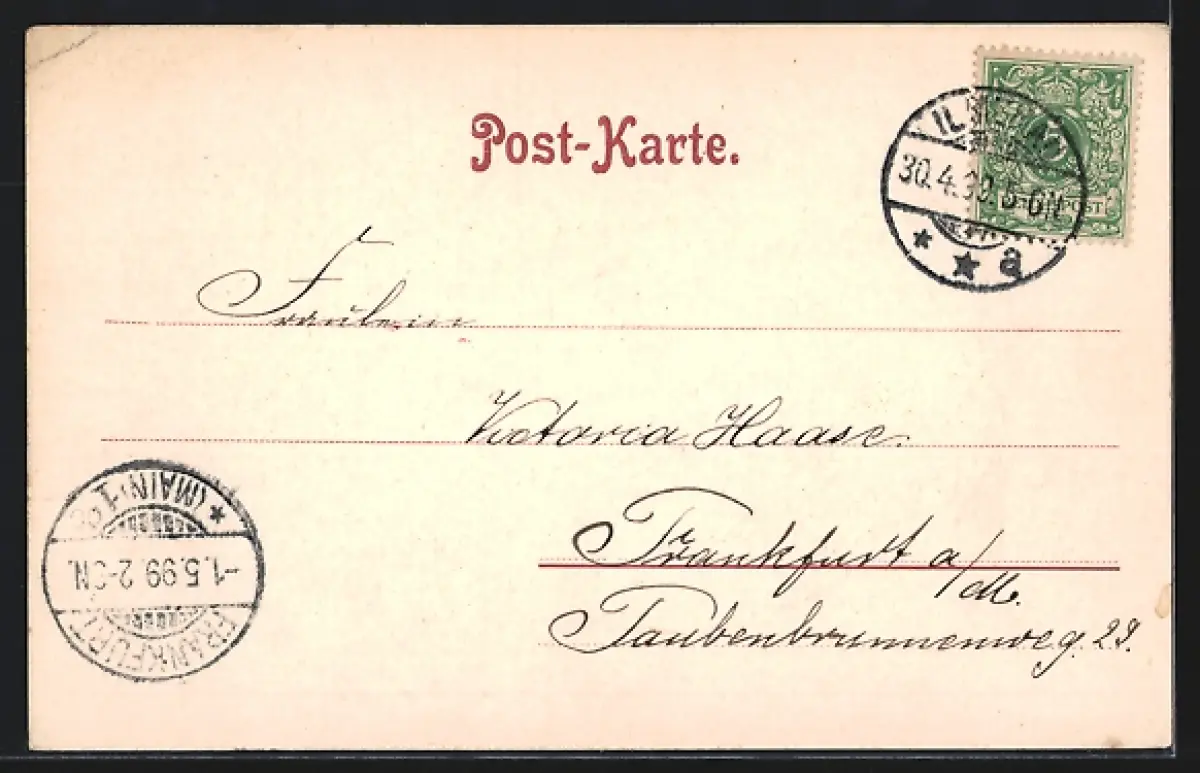 Post-Karte.
30.4.99. 5-6N
a
Fräulein
Victoria Haase.
Frankfurt a/M.
Taubenbrunnenweg. 29.
(MAIN) 1
-1.5.99 2-3N.
FRANKFURT